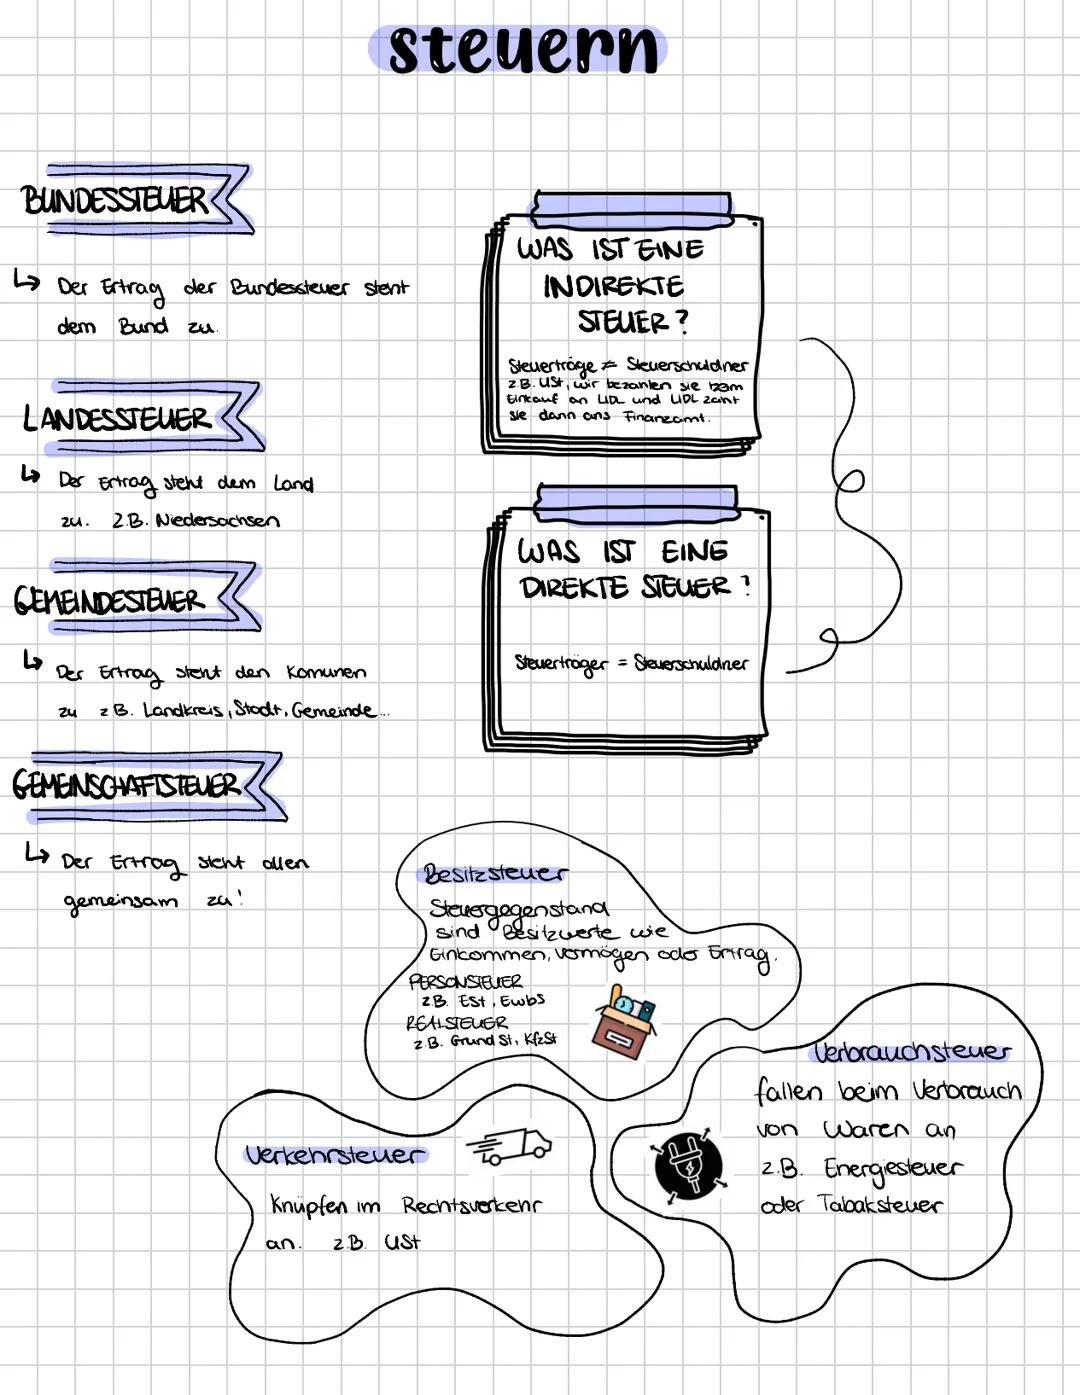 steuern
BUNDESSTEUER
↳ Der Ertrag der Bundessteuer steht
dem Bund zu.
LANDESSTEUER
↳ Der Ertrag steht dem Land
zu. z.B. Niedersachsen
GEMEINDESTEUER
↳ Der Ertrag steht den Komunen
zu z.B. Landkreis, Stadt, Gemeinde...
GEMEINSCHAFTSTEUER
↳ Der Ertrag steht allen
gemeinsam zu!
WAS IST EINE
INDIREKTE
STEUER?
Steuerträge ≠ Steuerschuldner
z.B. USt, wir bezahlen sie beim
Einkauf an LIDL und LIDL zahlt
sie dann ans Finanzamt.
WAS IST EINE
DIREKTE STEUER?
Steuerträger = Steuerschuldner
Besitzsteuer
Steuergegenstand
sind Besitzwerte wie
Einkommen, Vermögen oder Ertrag.
PERSONSTEUER
z.B. Est, Ewbs
REALSTEUER
z.B. Grund St, KfzSt
Verkehrsteuer
Knüpfen im Rechtsverkehr
an. z.B. USt
Verbrauchsteuer
fallen beim Verbrauch
von Waren an
z.B. Energiesteuer
oder Tabaksteuer